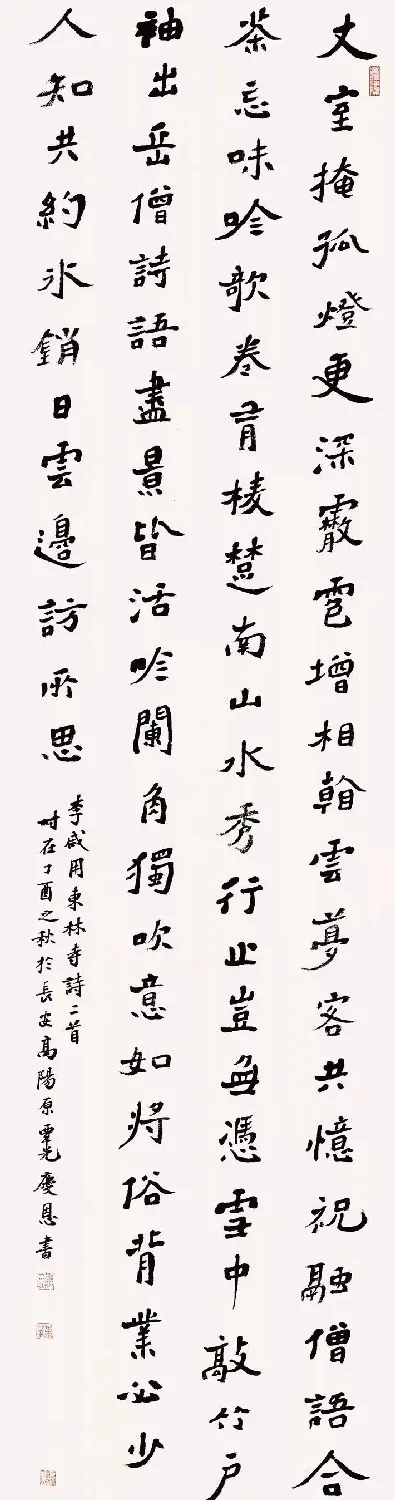 丈室掩孤燈更深霰雹增相看雲夢客共憶祝融僧語合
茶忘味吟欹卷有棱楚南山水秀行止豈無憑雪中敲竹户
袖出岳僧詩語盡景皆活吟闌角獨吹意如將俗背業必少
人知共約冰銷日雲邊訪所思
李咸用東林寺詩二首
時在丁酉之秋於長安高陽原覃光慶恩書